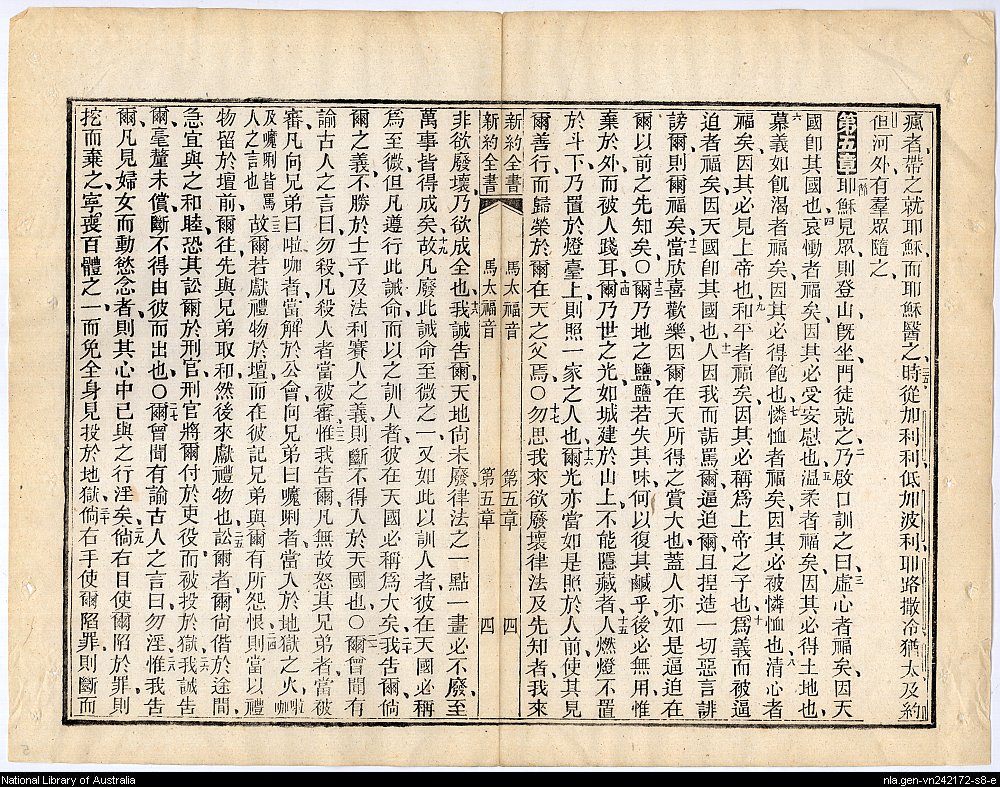 瘋者帶之就耶穌而耶穌醫之時從加利利低加波利耶路撒冷猶太及約
二五
但河外有羣眾隨之
第五章耶穌見眾則登山旣坐門徒就之乃啟口訓之曰虛心者福矣因天
二 三
國卽其國也哀慟者福矣因其必受安慰也溫柔者福矣因其必得土地也
四 五
慕義如飢渴者福矣因其必得飽也憐恤者福矣因其必被憐恤也清心者
六 七 八
福矣因其必見上帝也和平者福矣因其必稱爲上帝之子也爲義而被逼
九 十
迫者福矣因天國卽其國也人因我而詬罵爾逼迫爾且揑造一切惡言誹
十一
謗爾則爾福矣當欣喜歡樂因爾在天所得之賞大也蓋人亦如是逼迫在
十二
爾以前之先知矣〇爾乃地之鹽鹽若失其味何以復其鹹乎後必無用惟
十三
棄於外而被人踐耳爾乃世之光如城建於山上不能隱藏者人燃燈不置
十四 十五
於斗下乃置於燈臺上則照一家之人也爾光亦當如是照於人前使其見
十六
爾善行而歸榮於爾在天之父焉〇勿思我來欲廢壞律法及先知者我來
十七
新約全書 馬太福音 第五章 四
新約全書 馬太福音 第五章 四
非欲廢壞乃欲成全也我誠吿爾天地尙未廢律法之一點一畫必不廢至
十八
萬事皆得成矣故凡廢此誡命至微之一又如此以訓人者彼在天國必稱
十九
爲至微但凡遵行此誡命而以之訓人者彼在天國必稱爲大矣我吿爾倘
二十
爾之義不勝於士子及法利賽人之義則斷不得入於天國也〇爾曾聞有
二一
諭古人之言曰勿殺凡殺人者當被審惟我吿爾凡無故怒其兄弟者當被
二二
審凡向兄弟曰啦咖者當解於公會向兄弟曰嚰唎者當入於地獄之火啦咖
及嚰唎皆罵人之言也故爾若獻禮物於壇而在彼記兄弟與爾有所怨恨則當以禮
二三 二四
物留於壇前爾往先與兄弟取和然後來獻禮物也訟爾者爾尙偕於途間
二五
急宜與之和睦恐其訟爾於刑官刑官將爾付於吏役而被投於獄我誠吿
二六
爾毫釐未償斷不得由彼而出也〇爾曾聞有諭古人之言曰勿淫惟我吿
二七 二八
爾凡見婦女而動慾念者則其心中已與之行淫矣倘右目使爾陷於罪則
二九
挖而棄之寧喪百體之一而免全身見投於地獄倘右手使爾陷罪則斷而
三十
National Library of Australia
nla.gen-vn242172-s8-e